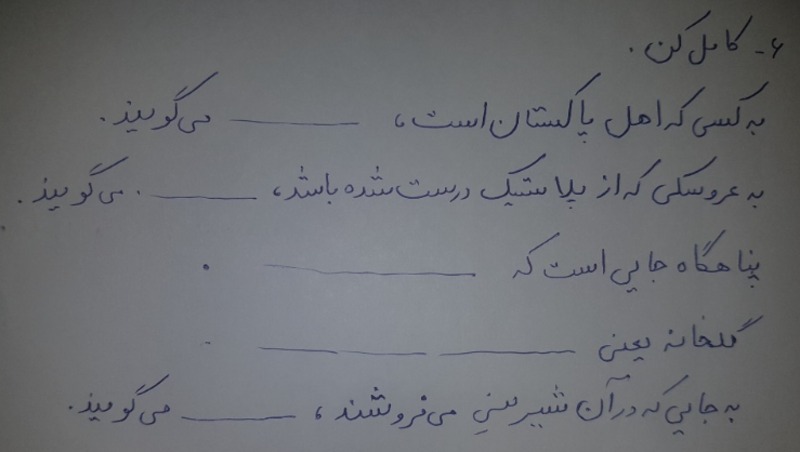 ۶- کامل کن.
به کسی که اهل پاکستان است، ــــــــــ می‌گویند.
به عروسکی که از پلاستیک درست شده باشد، ــــــــــ می‌گویند.
پناهگاه جایی است که ــــــــــــــــ .
گلخانه یعنی ــــــــــ ــــــــــــــــ .
به جایی که در آن شیرینی می‌فروشند، ــــــــــ می‌گویند.